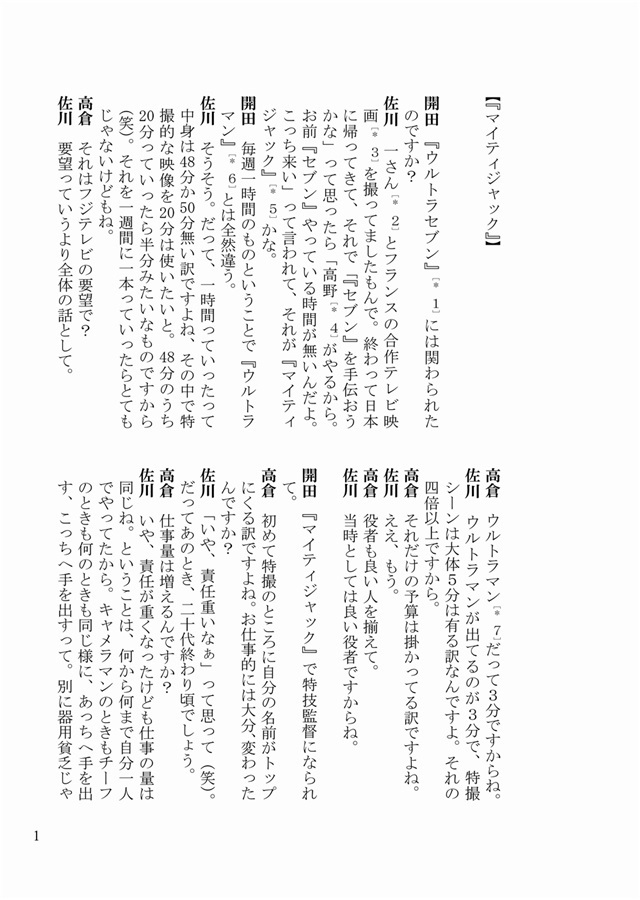 【『マイティジャック』】
開田　『ウルトラセブン』［＊1］には関わられた
のですか？
佐川　一さん［＊2］とフランスの合作テレビ映
画［＊3］を撮ってましたもんで。終わって日本
に帰ってきて、それで『セブン』を手伝おう
かな」って思ったら「高野［＊4］がやるから。
お前『セブン』やっている時間が無いんだよ。
こっち来い」って言われて、それが『マイティ
ジャック』［＊5］かな。
開田　毎週一時間のものということで『ウルトラ
マン』［＊6］とは全然違う。
佐川　そうそう。だって、一時間っていったって
中身は48分か50分無い訳ですよね、その中で特
撮的な映像を20分は使いたいと。48分のうち
20分っていったら半分みたいなものですから
（笑）。それを一週間に一本っていったらとても
じゃないけどもね。
高倉　それはフジテレビの要望で？
佐川　要望っていうより全体の話として。
高倉　ウルトラマン［＊7］だって３分ですからね。
佐川　ウルトラマンが出てるのが３分で、特撮
シーンは大体５分は有る訳なんですよ。それの
四倍以上ですから。
高倉　それだけの予算は掛かってる訳ですよね。
佐川　ええ、もう。
高倉　役者も良い人を揃えて。
佐川　当時としては良い役者ですからね。
開田　『マイティジャック』で特技監督になられ
て。
高倉　初めて特撮のところに自分の名前がトップ
にくる訳ですよね。お仕事的には大分、変わった
んですか？
佐川　「いや、責任重いなぁ」って思って（笑）。
だってあのとき、二十代終わり頃でしょう。
高倉　仕事量は増えるんですか？
佐川　いや、責任が重くなったけども仕事の量は
同じね。ということは、何から何まで自分一人
でやってたから。キャメラマンのときもチーフ
のときも何のときも同じ様に、あっちへ手を出
す、こっちへ手を出すって。別に器用貧乏じゃ
1